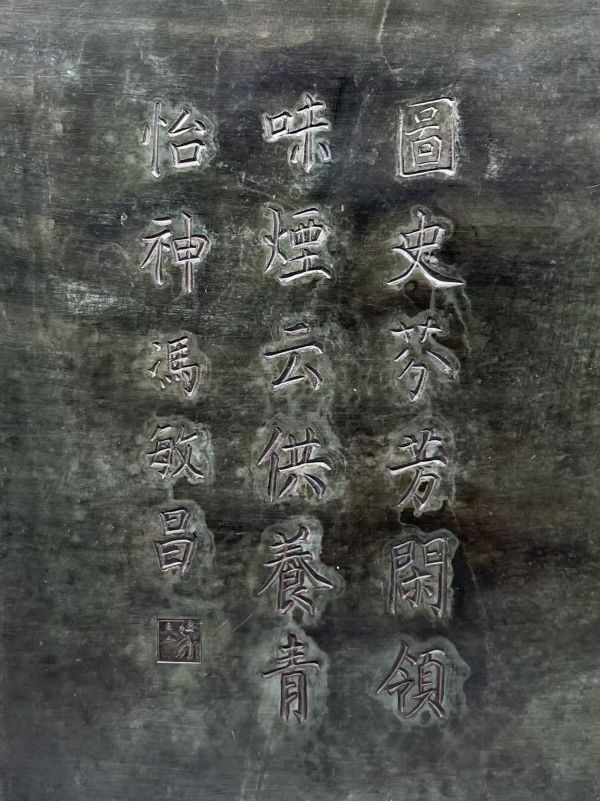 圖史芬芳閑領
味煙云供養青
怡神馮敏昌